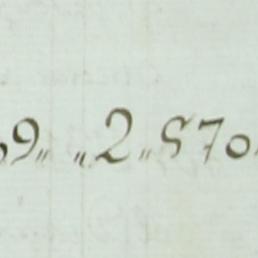 9 „ „ 2 „ 570